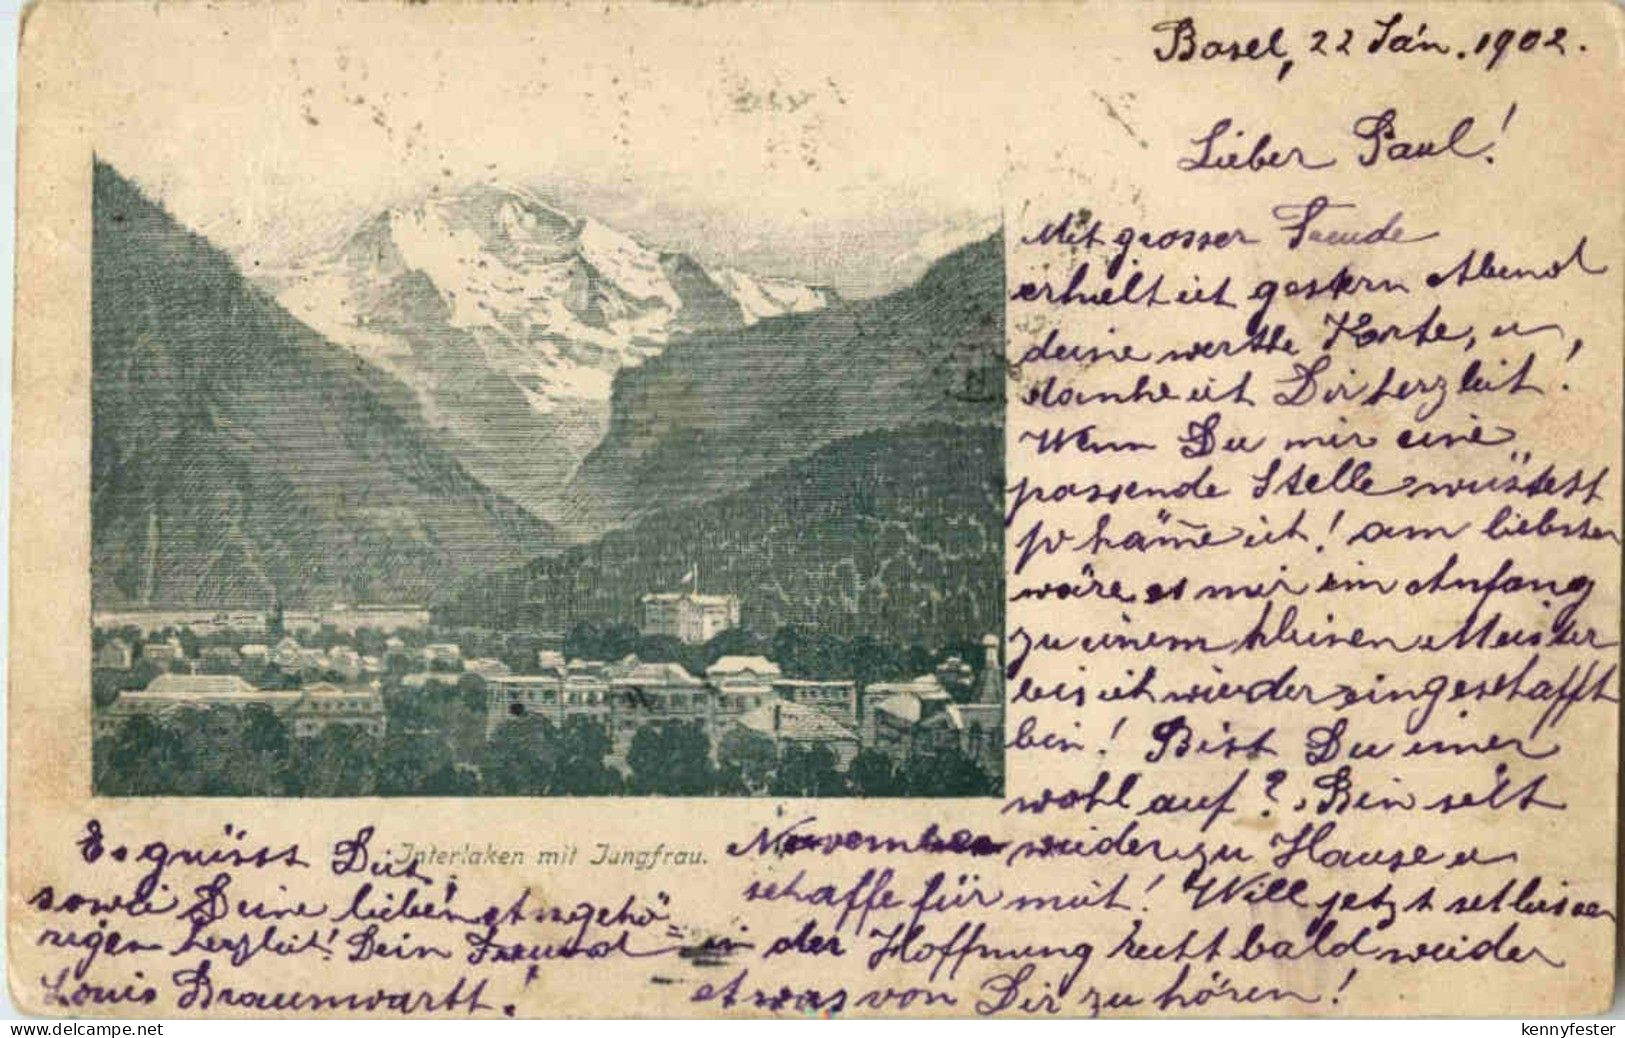 Basel, 22 Jan. 1902.
Lieber Paul!
Mit grosser Freude
erhielt ich gestern Abend
deine werthe Karte, u,
danke ich Dir herzlich!
Wenn Du mir eine
passende Stelle wüstest
so käme ich! am liebsten
wäre es mir ein Anfang
zu einem kleinen Meister
bis ich wieder eingeschafft
bin! Bist Du imer
wohl auf? Bin seit
November wieder zu Hause u
schaffe für mich! Will jetzt schliesen
in der Hoffnung recht bald wieder
etwas von Dir zu hören!
Es grüsst Dich
sowie Deine lieben angehö=
rigen herzlich! Dein Freund
Louis Braunwartt.
Interlaken mit Jungfrau.
kennyfester